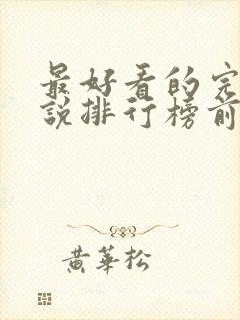 最好看的完
說排行榜前
黃華松